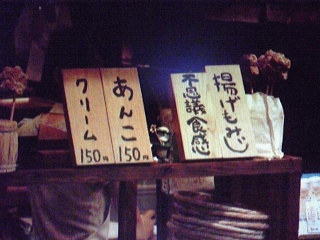 揚げもみじ
不思議食感
あんこ
150円
クリーム
150円